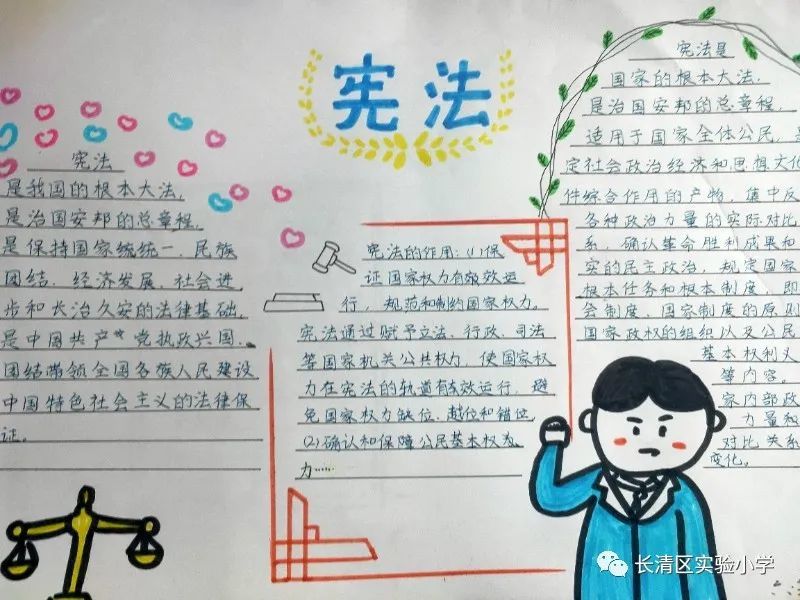 宪法
宪法
是我国的根本大法,
是治国安邦的总章程,
是保持国家统统一、民族
团结、经济发展、社会进
步和长治久安的法律基础,
是中国共产党执政兴国、
团结带领全国各族人民建设
中国特色社会主义的法律保
证。
宪法的作用:(1)保
证国家权力有效运
行,规范和制约国家权力。
宪法通过赋予立法、行政、司法
等国家机关公共权力,使国家权
力在宪法的轨道有效运行,避
免国家权力缺位、越位和错位
(2)确认和保障公民基本权
力……
宪法是
国家的根本大法,
是治国安邦的总章程,
适用于国家全体公民,是
定社会政治经济和思想文化
件综合作用的产物,集中反
各种政治力量的实际对比
系,确认革命胜利成果和
实的民主政治,规定国家
根本任务和根本制度,即
会制度、国家制度的原则
国家政权的组织以及公民
基本权利义
等内容。
家内部政
力量和
对比关系
变化。
长清区实验小学